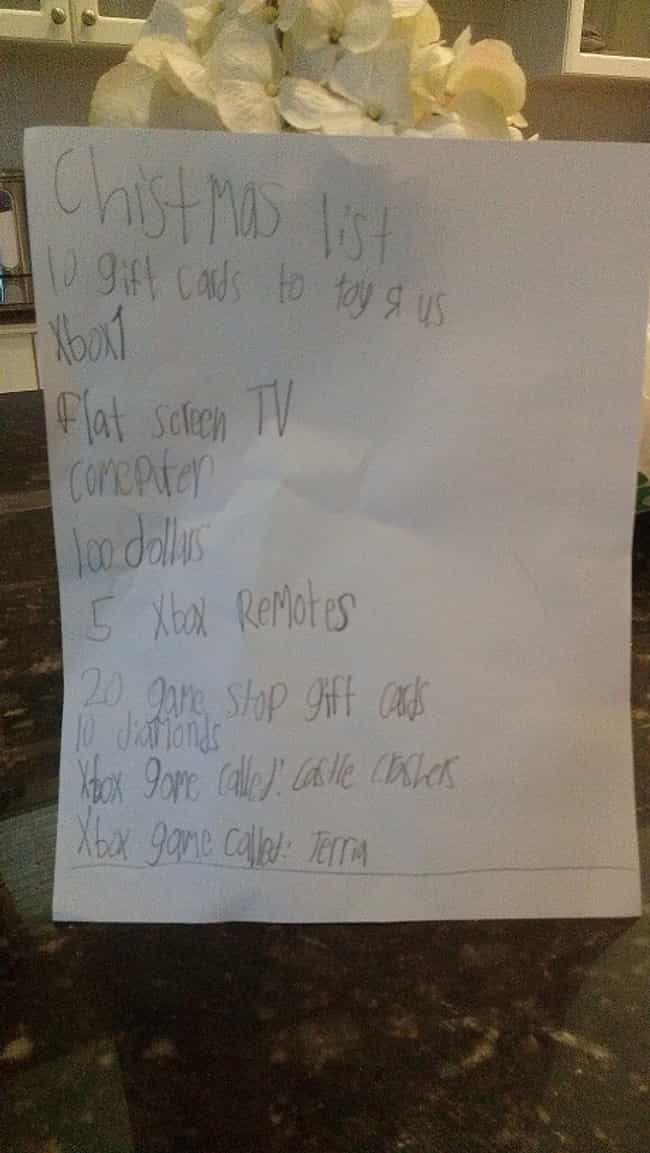 Chistmas list
10 gift cards to toy Я us
Xbox1
flat screen TV
comepiter
100 dollars
5 Xbox Remotes
20 game stop gift cards
10 diamonds
Xbox game called: castle crashers
Xbox game called: Terria